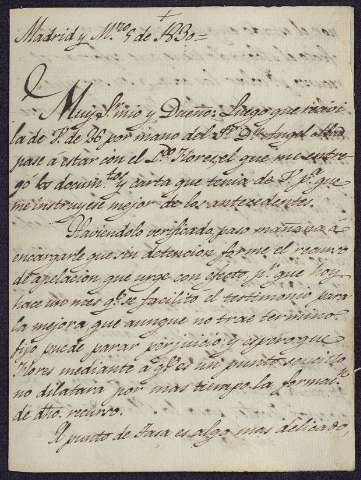 Madrid y Mzo 5 de 1830=
Muy Sr. mio y Dueño: Luego que recivi
la de V. de 26 por mano del Sr. Dn. Angel
pase a estar con el Sr. Flores, el que me entre
gó los docum.tos y carta que tenia de V. p.a que
me instruyese mejor de los antecedentes.
Haviendolo verificado, paso mañana á
encargarle que sin detencion forme el recurso
de apelacion, que urge con efecto, p.r que hoy
hace un mes q.e se facilitó el testimonio para
la mejora, que aunque no trae termino
fijo puede parar perjuicio; y espero que
Flores mediante á q.e es un punto sencillo
no dilatará por mas tiempo la formal.n
de dho. recurso.
El punto de Tasa es algo mas delicado,